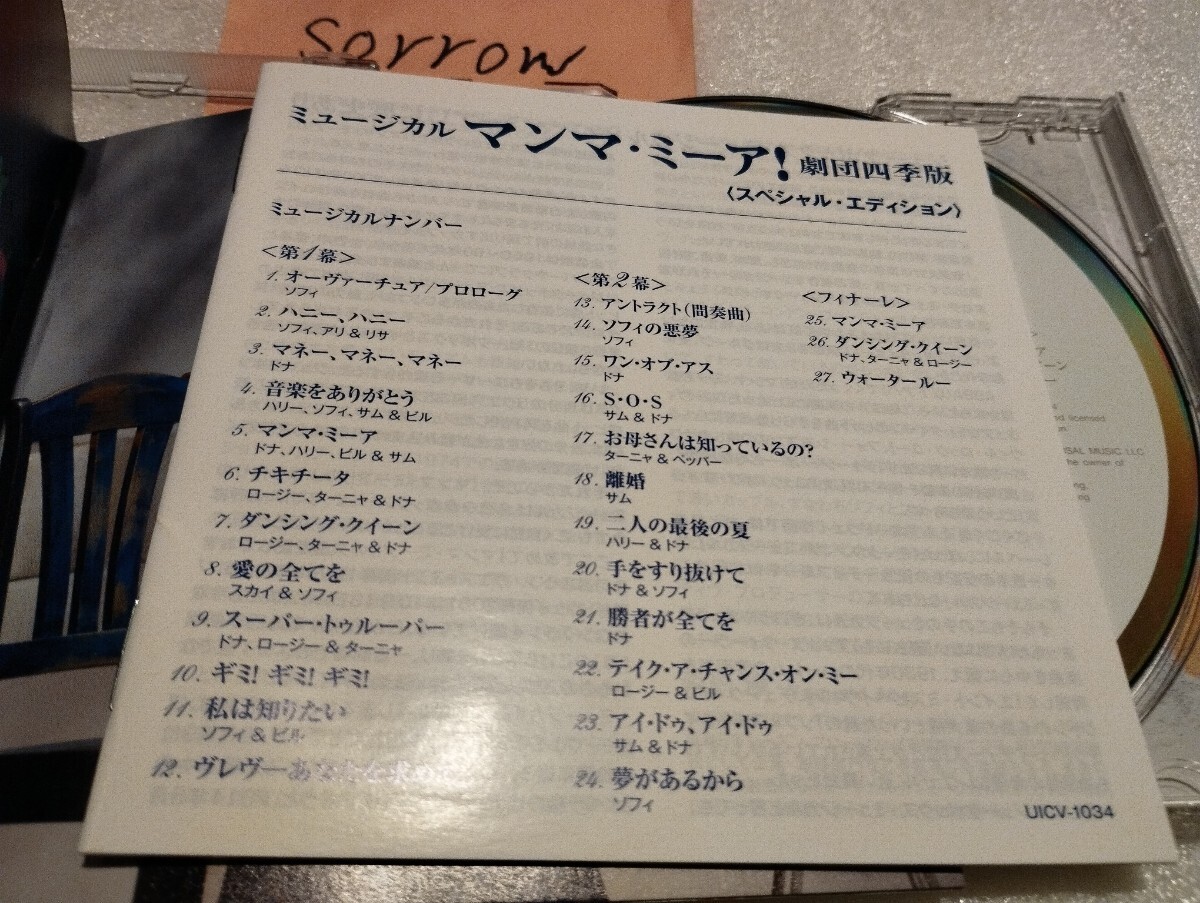 sorrow
ミュージカル マンマ・ミーア! 劇団四季版
〈スペシャル・エディション〉
ミュージカルナンバー
<第1幕>
1. オーヴァーチュア/プロローグ
ソフィ
2. ハニー、ハニー
ソフィ、アリ & リサ
3. マネー、マネー、マネー
ドナ
4. 音楽をありがとう
ハリー、ソフィ、サム & ビル
5. マンマ・ミーア
ドナ、ハリー、ビル & サム
6. チキチータ
ロージー、ターニャ & ドナ
7. ダンシング・クイーン
ロージー、ターニャ & ドナ
8. 愛の全てを
スカイ & ソフィ
9. スーパー・トゥルーパー
ドナ、ロージー & ターニャ
10. ギミ! ギミ! ギミ!
11. 私は知りたい
ソフィ & ビル
12. ヴレヴ―あなたを求め
<第2幕>
13. アントラクト(間奏曲)
14. ソフィの悪夢
ソフィ
15. ワン・オブ・アス
ドナ
16. S・O・S
サム & ドナ
17. お母さんは知っているの?
ターニャ & ペッパー
18. 離婚
サム
19. 二人の最後の夏
ハリー & ドナ
20. 手をすり抜けて
ドナ & ソフィ
21. 勝者が全てを
ドナ
22. テイク・ア・チャンス・オン・ミー
ロージー & ビル
23. アイ・ドゥ、アイ・ドゥ
サム & ドナ
24. 夢があるから
ソフィ
<フィナーレ>
25. マンマ・ミーア
26. ダンシング・クイーン
ドナ、ターニャ & ロージー
27. ウォータールー
UICV-1034
licensed
MUSIC LLC
the owner of